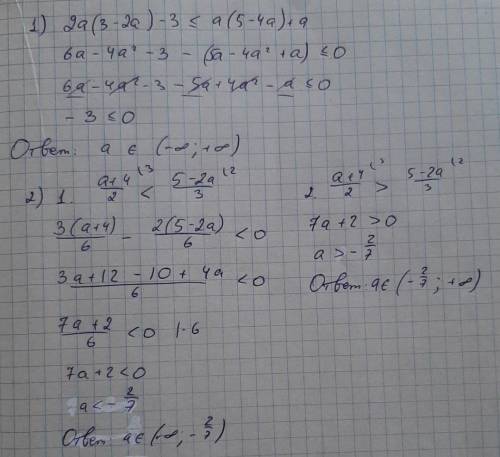 1) 2a(3-2a)-3 ≤ a(5-4a)+a
6a-4a²-3 - (5a-4a²+a) ≤0
6a-4a²-3-5a+4a²-a ≤0
-3≤0
Ответ: a ∈ (-∞;+∞)
2) 1. (a+4)/2 (3 < (5-2a)/3 (2
3(a+4)/6 - 2(5-2a)/6 <0
(3a+12-10+4a)/6 <0
(7a+2)/6 <0 |·6
7a+2<0
a<-2/7
Ответ a∈(-∞;-2/7)
2. (a+4)/2 (3 > (5-2a)/3 (2
7a+2>0
a>-2/7
Ответ: a∈(-2/7;+∞)